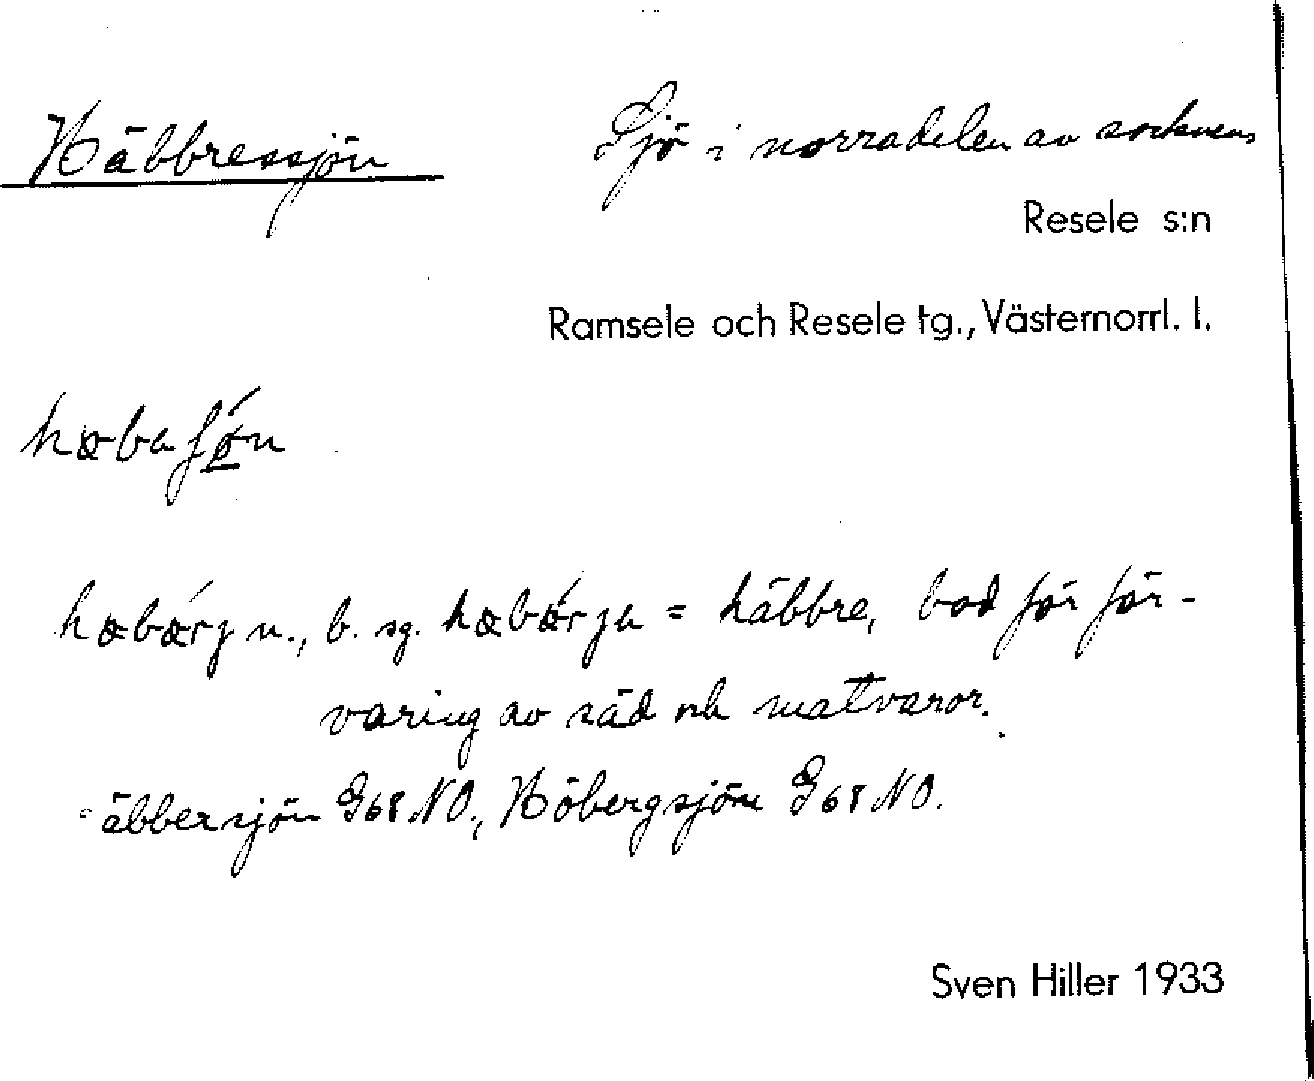 Häbbressjön
Sjö i norradelen av socknens
Resele s:n
Ramsele och Resele tg., Västernorrl. l.
hæbaʃǿn
hæbǽrj n., b. sg. hæbǽrja = häbbre, bod för för-
varing av säd och matvaror.
-äbbersjön G68 NO., Höbergsjön G68 NO.
Sven Hiller 1933